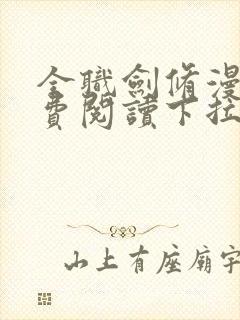 全職劍脩漫
費閱讀下拉
山上有座廟字